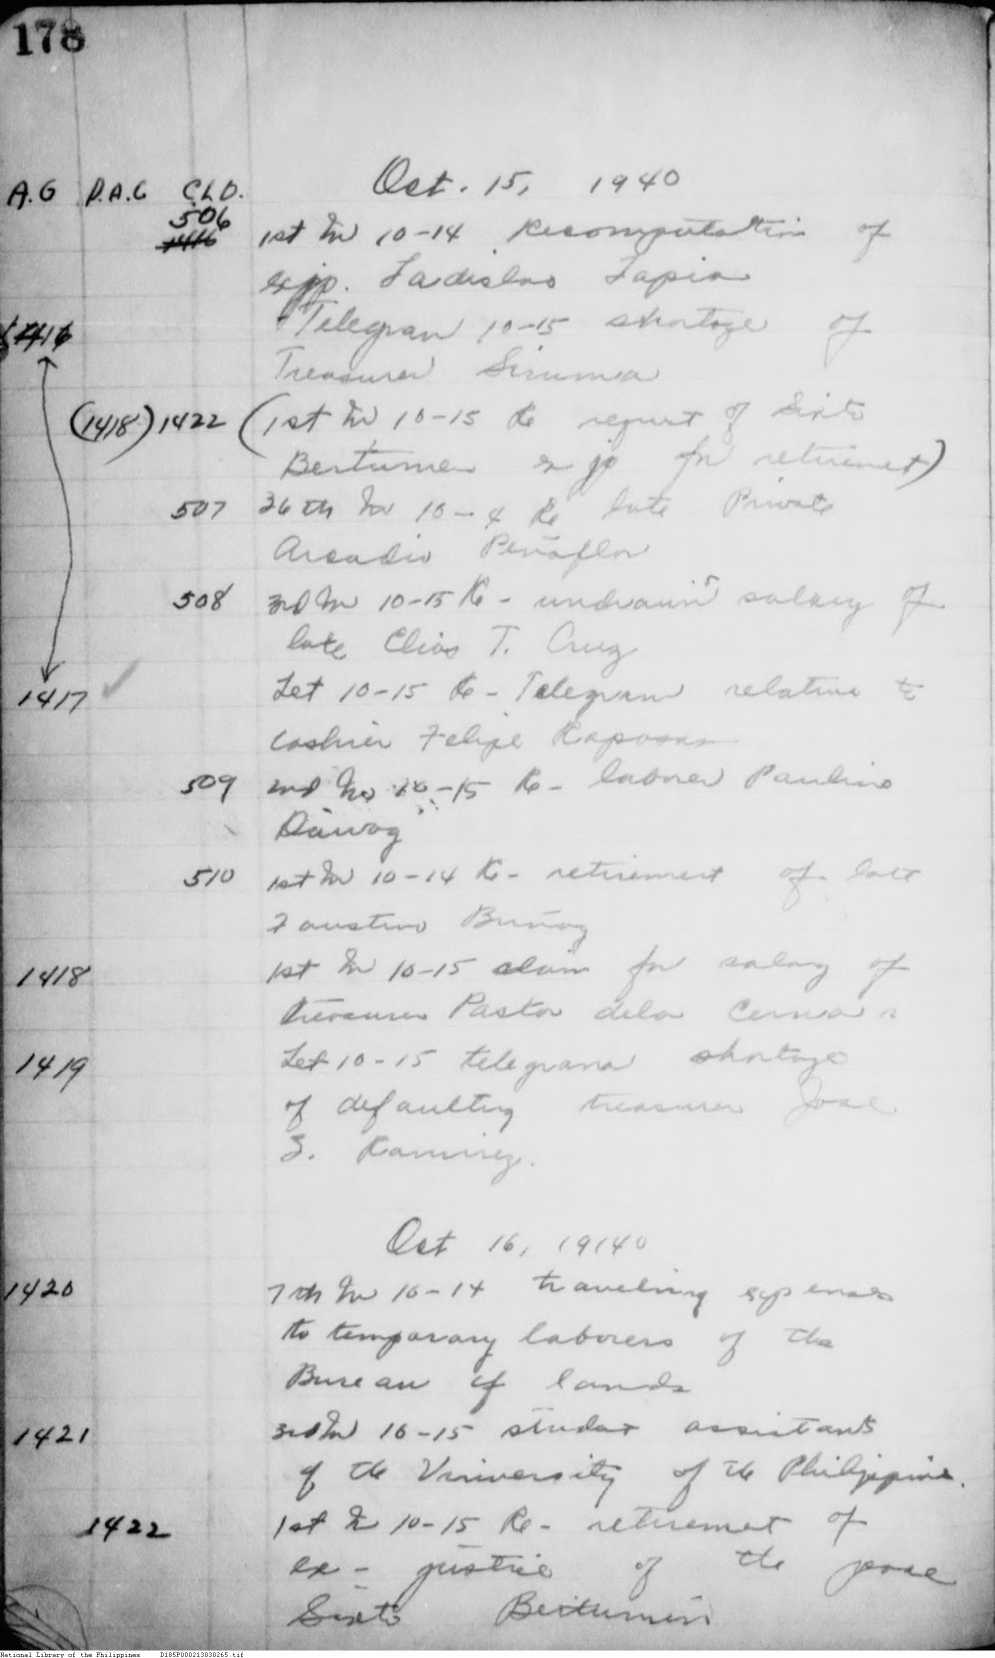 178
Oct. 15, 1940
A.G D.A.G C.L.D.
506
1416 1st In 10-14 Recomputation of
ex jp. Ladislao Tapia
1416 Telegram 10-15 shortage of
Treasurer Siruma
(1418) 1422 (1st In 10-15 Re request of Sixto
Bertumen ex jp for retirement)
507 36th In 10-4 Re late Private
Arcadio Peñaflor
508 3rd In 10-15 Re - undrawn salary of
late Elias T. Cruz
1417 Let 10-15 Re - Telegram relative to
cashier Felipe Raposas
509 2nd In 10-15 Re - laborer Paulino
510 1st In 10-14 Re - retirement of late
Faustino
1418 1st In 10-15 claim for salary of
treasurer Pastor dela Cerna
1419 Let 10-15 telegram shortage
of defaulting treasurer Jose
S. Ramirez.
Oct 16, 19140
1420 7th In 10-14 traveling expenses
to temporary laborers of the
Bureau of lands
1421 3rd In 10-15 student assistants
of the University of the Philippines.
1422 1st In 10-15 Re - retirement of
ex - justice of the peace
Sixto Bertumen
National Library of the Philippines D185P000213830265.tif